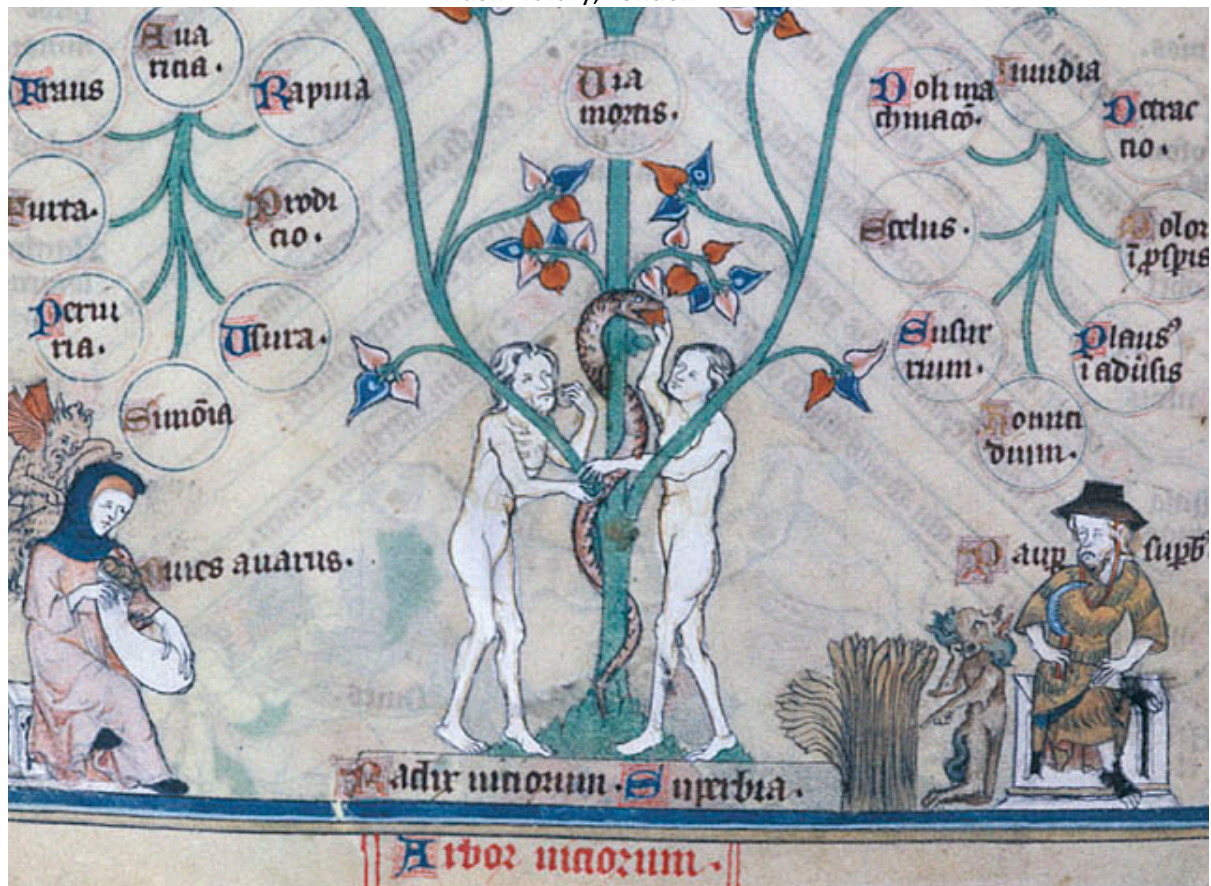 Aua
ricia.
Fraus
Rapina
Furta.
Prodi
cio.
Periu
ria.
Usura.
Simōia
Via
mortis.
Inuidia
Doli ma
chinacō.
Detrac
tio.
Scelus.
Dolor
ī p̱spis
Susur
rium.
Plausꝰ
ī adūsis
Homici
dium.
Diues auarus.
Paup̱ sup̱b
Radix uiciorum. Superbia.
Arbor uiciorum.